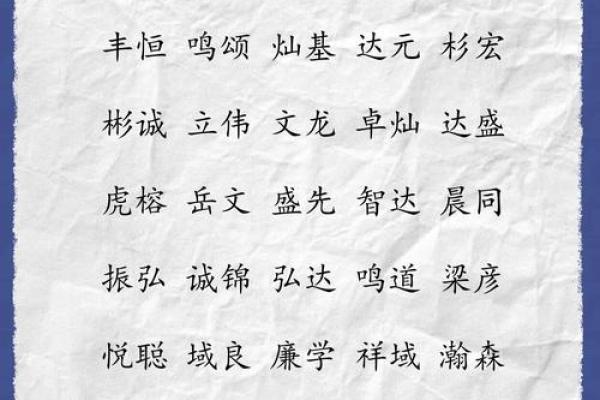 丰恒 鸣颂 灿基 达元 杉宏
彬诚 立伟 文龙 卓灿 达盛
虎榕 岳文 盛先 智达 晨同
振弘 诚锦 弘达 鸣道 梁彦
悦聪 域良 廉学 祥域 瀚森